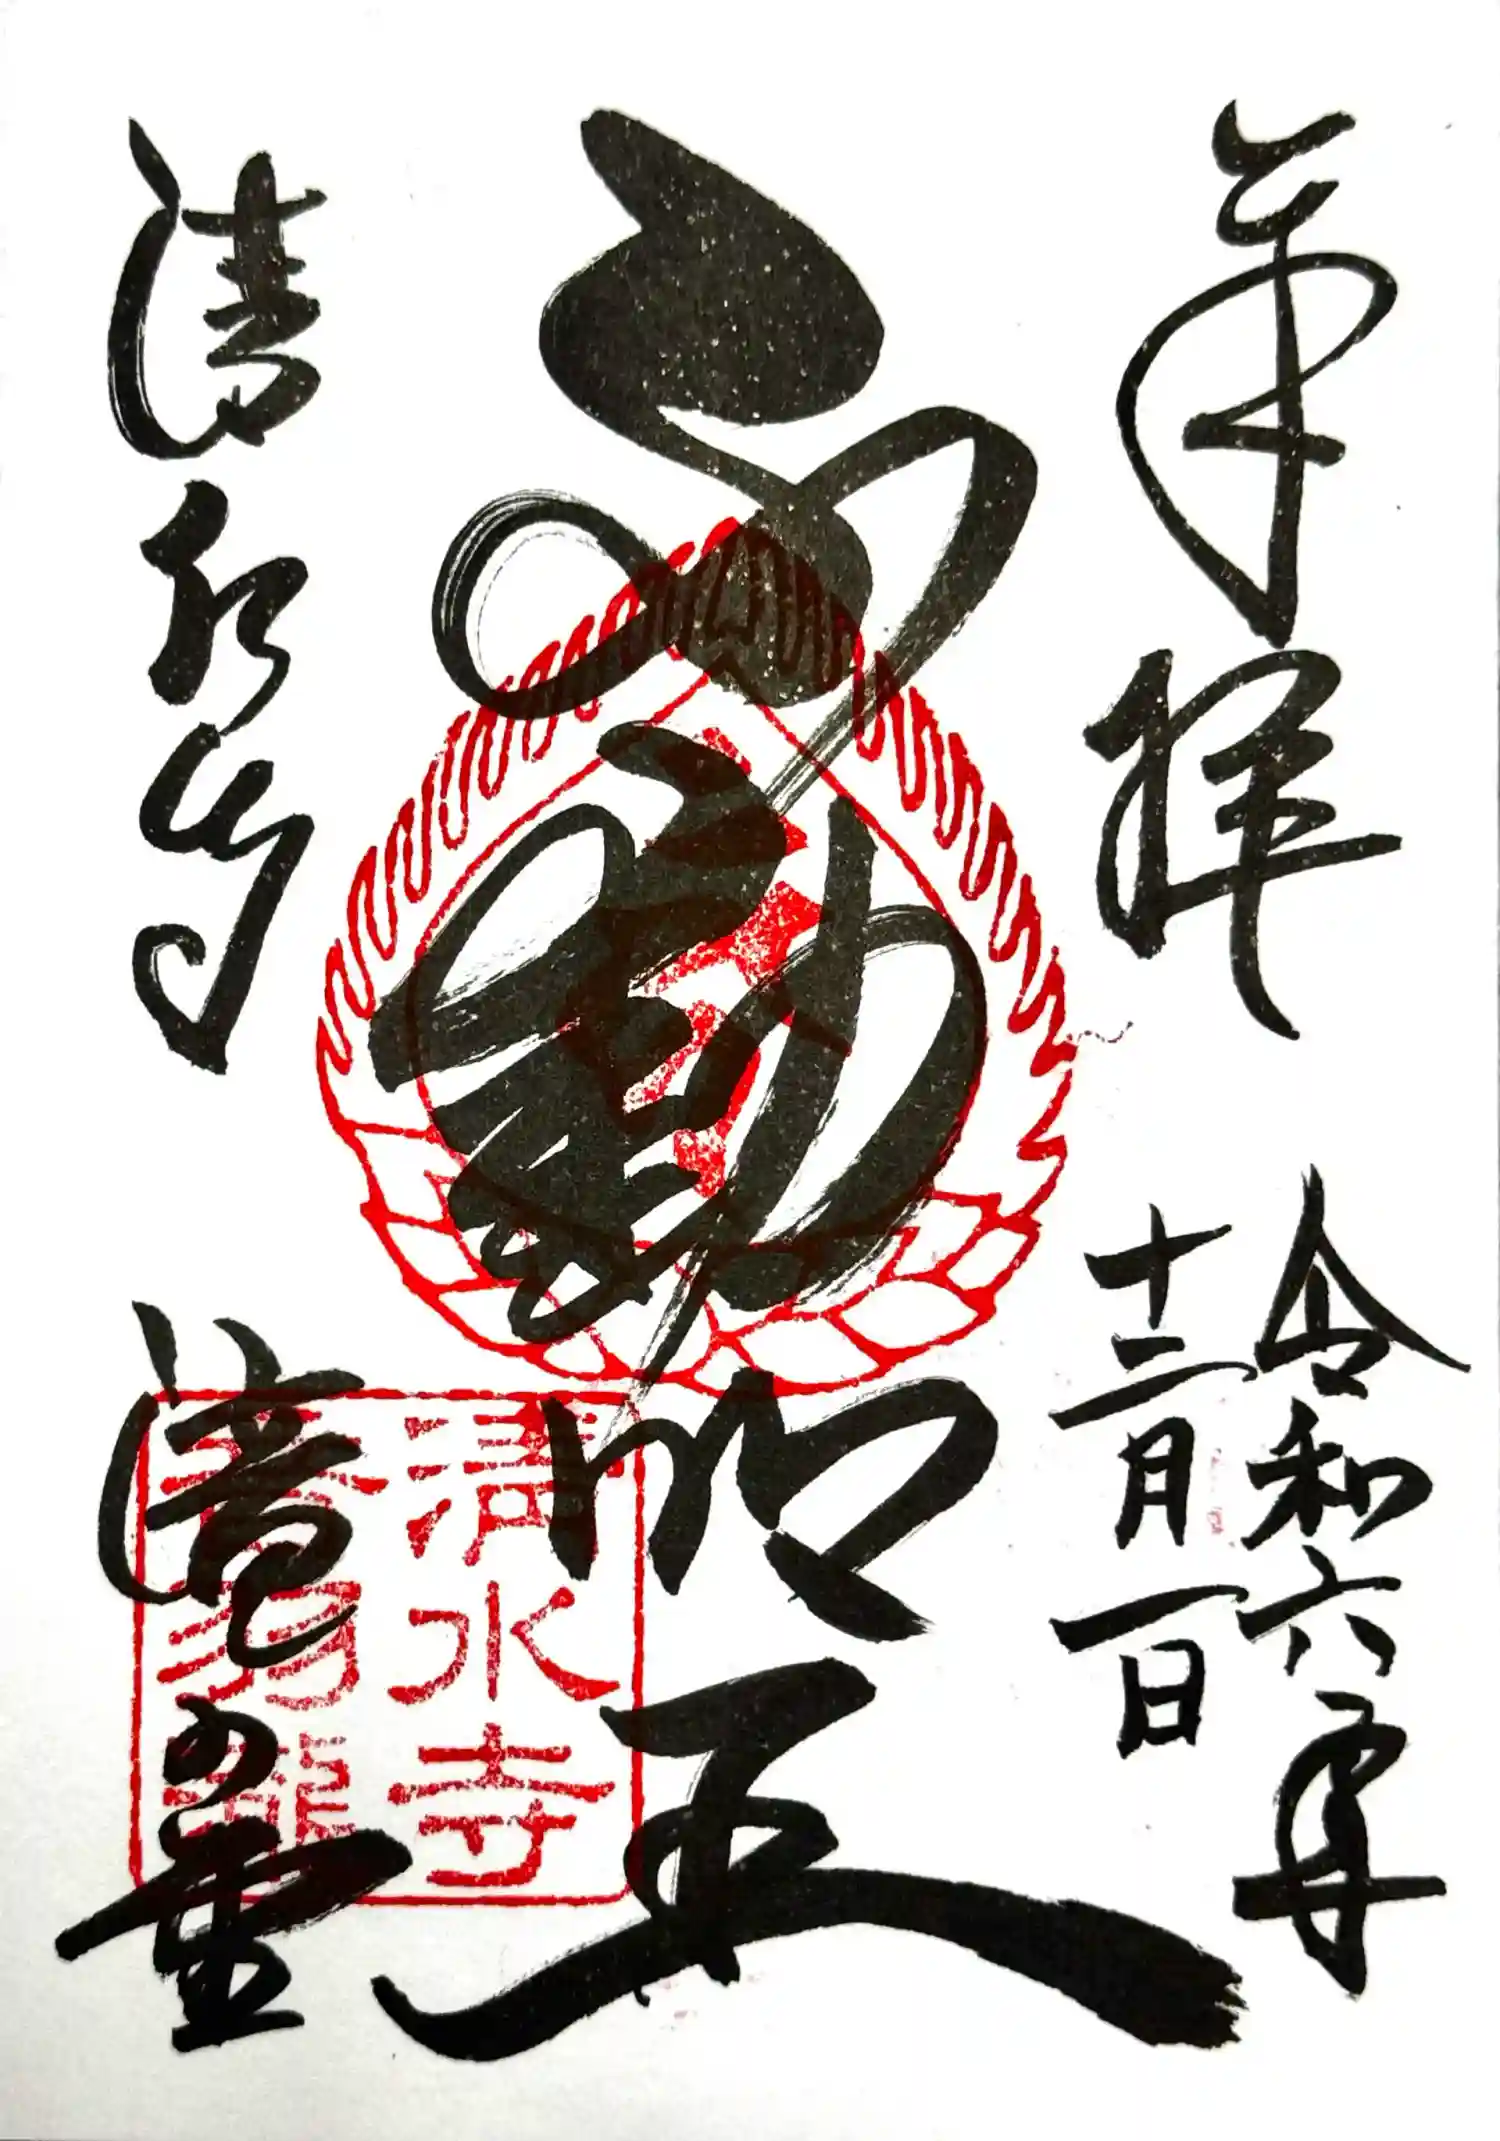 奉拝
令和六年
十二月一日
不動明王
清水寺
滝の堂
清水寺